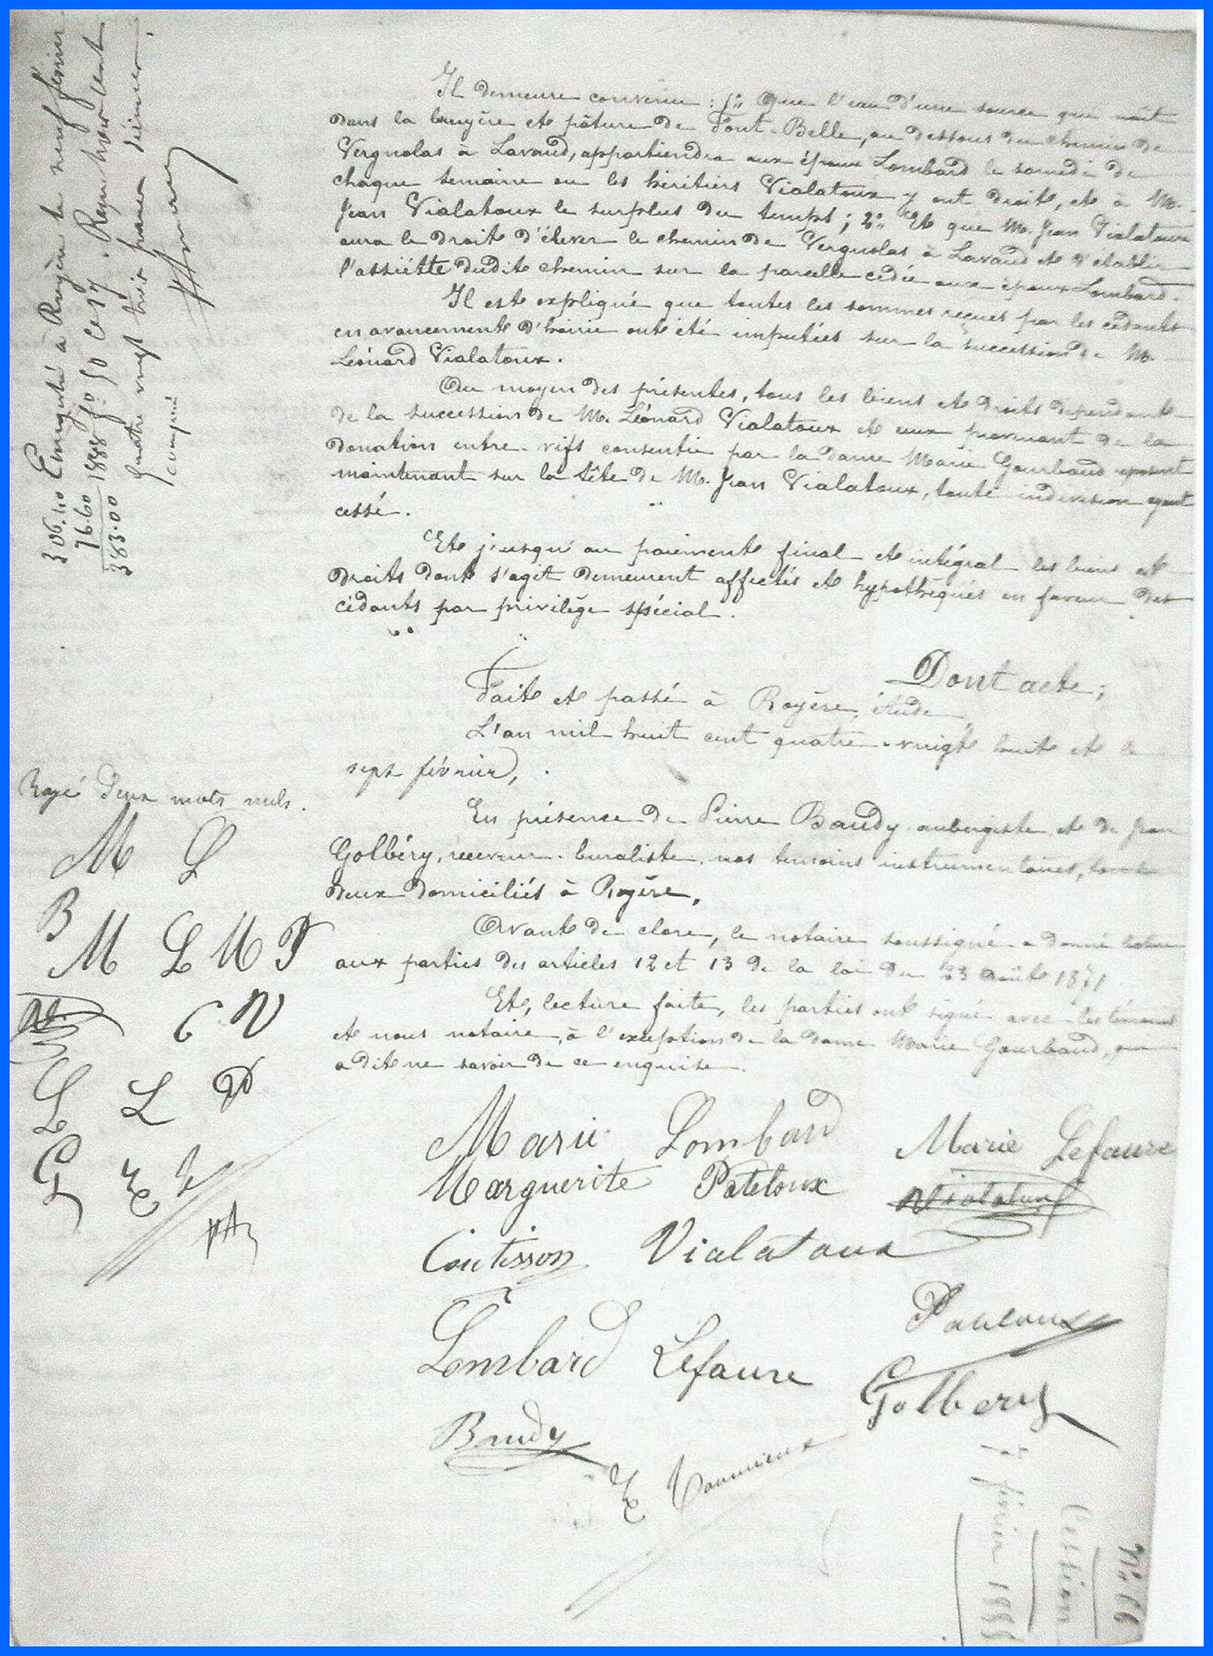 Il demeure convenu : 1º Que l'eau d'une source qui naît
dans la bruyère et pâture de Font-Belle, au dessous du chemin de
Vergnolas à Lavaud, appartiendra aux époux Lombard le samedi de
chaque semaine où les héritiers Vialatoux y ont droit, et à M.
Jean Vialatoux le surplus du temps ; 2º Et que M. Jean Vialatoux
aura le droit d'élever le chemin de Vergnolas à Lavaud et d'établir
l'assiétte dudit chemin sur la parcelle cédée aux époux Lombard.
Il est expliqué que toutes les sommes reçues par les cédants
en avancement d'hoirie ont été imputées sur la succession de M.
Léonard Vialatoux.
Au moyen des présentes, tous les biens et droits dépendant
de la succession de M. Léonard Vialatoux et ceux provenant de la
donation entre-vifs consentie par la dame Marie Gourbaud
maintenant sur la tête de M. Jean Vialatoux, toute indivision ayant
cessé.
Et jusqu'au paiement final et intégral les biens et
droits dont s'agit demeurent affectés et hypothéqués en faveur des
cédants par privilège spécial.
Dont acte ;
Fait et passé à Royère, étude,
L'an mil huit cent quatre-vingt huit et le
sept février,
En présence de Pierre Baudy aubergiste et de Jean
Golbéry, receveur-buraliste, nos témoins instrumentaires, tous
deux domiciliés à Royère,
Avant de clore, le notaire soussigné a donné lecture
aux parties des articles 12 et 13 de la loi du 23 Août 1871
Et, lecture faite, les parties ont signé avec les témoins
et nous notaire, à l'exception de la dame Marie Gourbaud, qui
a dit ne savoir de ce enquise.
Marie Lombard Marie Lefaure
Marguerite Pateloux Vialatoux
Coutisson Vialatoux
Pateloux
Lombard Lefaure
Golbery
Baudy
Enregistré à Royère le neuf février
1888 fº 50 Cº 17. Reçu trois cent
quatre vingt trois francs décimes
compris
306.40
76.60
383.00
Rayé deux mots nuls.
M L
B
M L M P
C V
L L P
G
Nº 66
Cession
7 février 1888